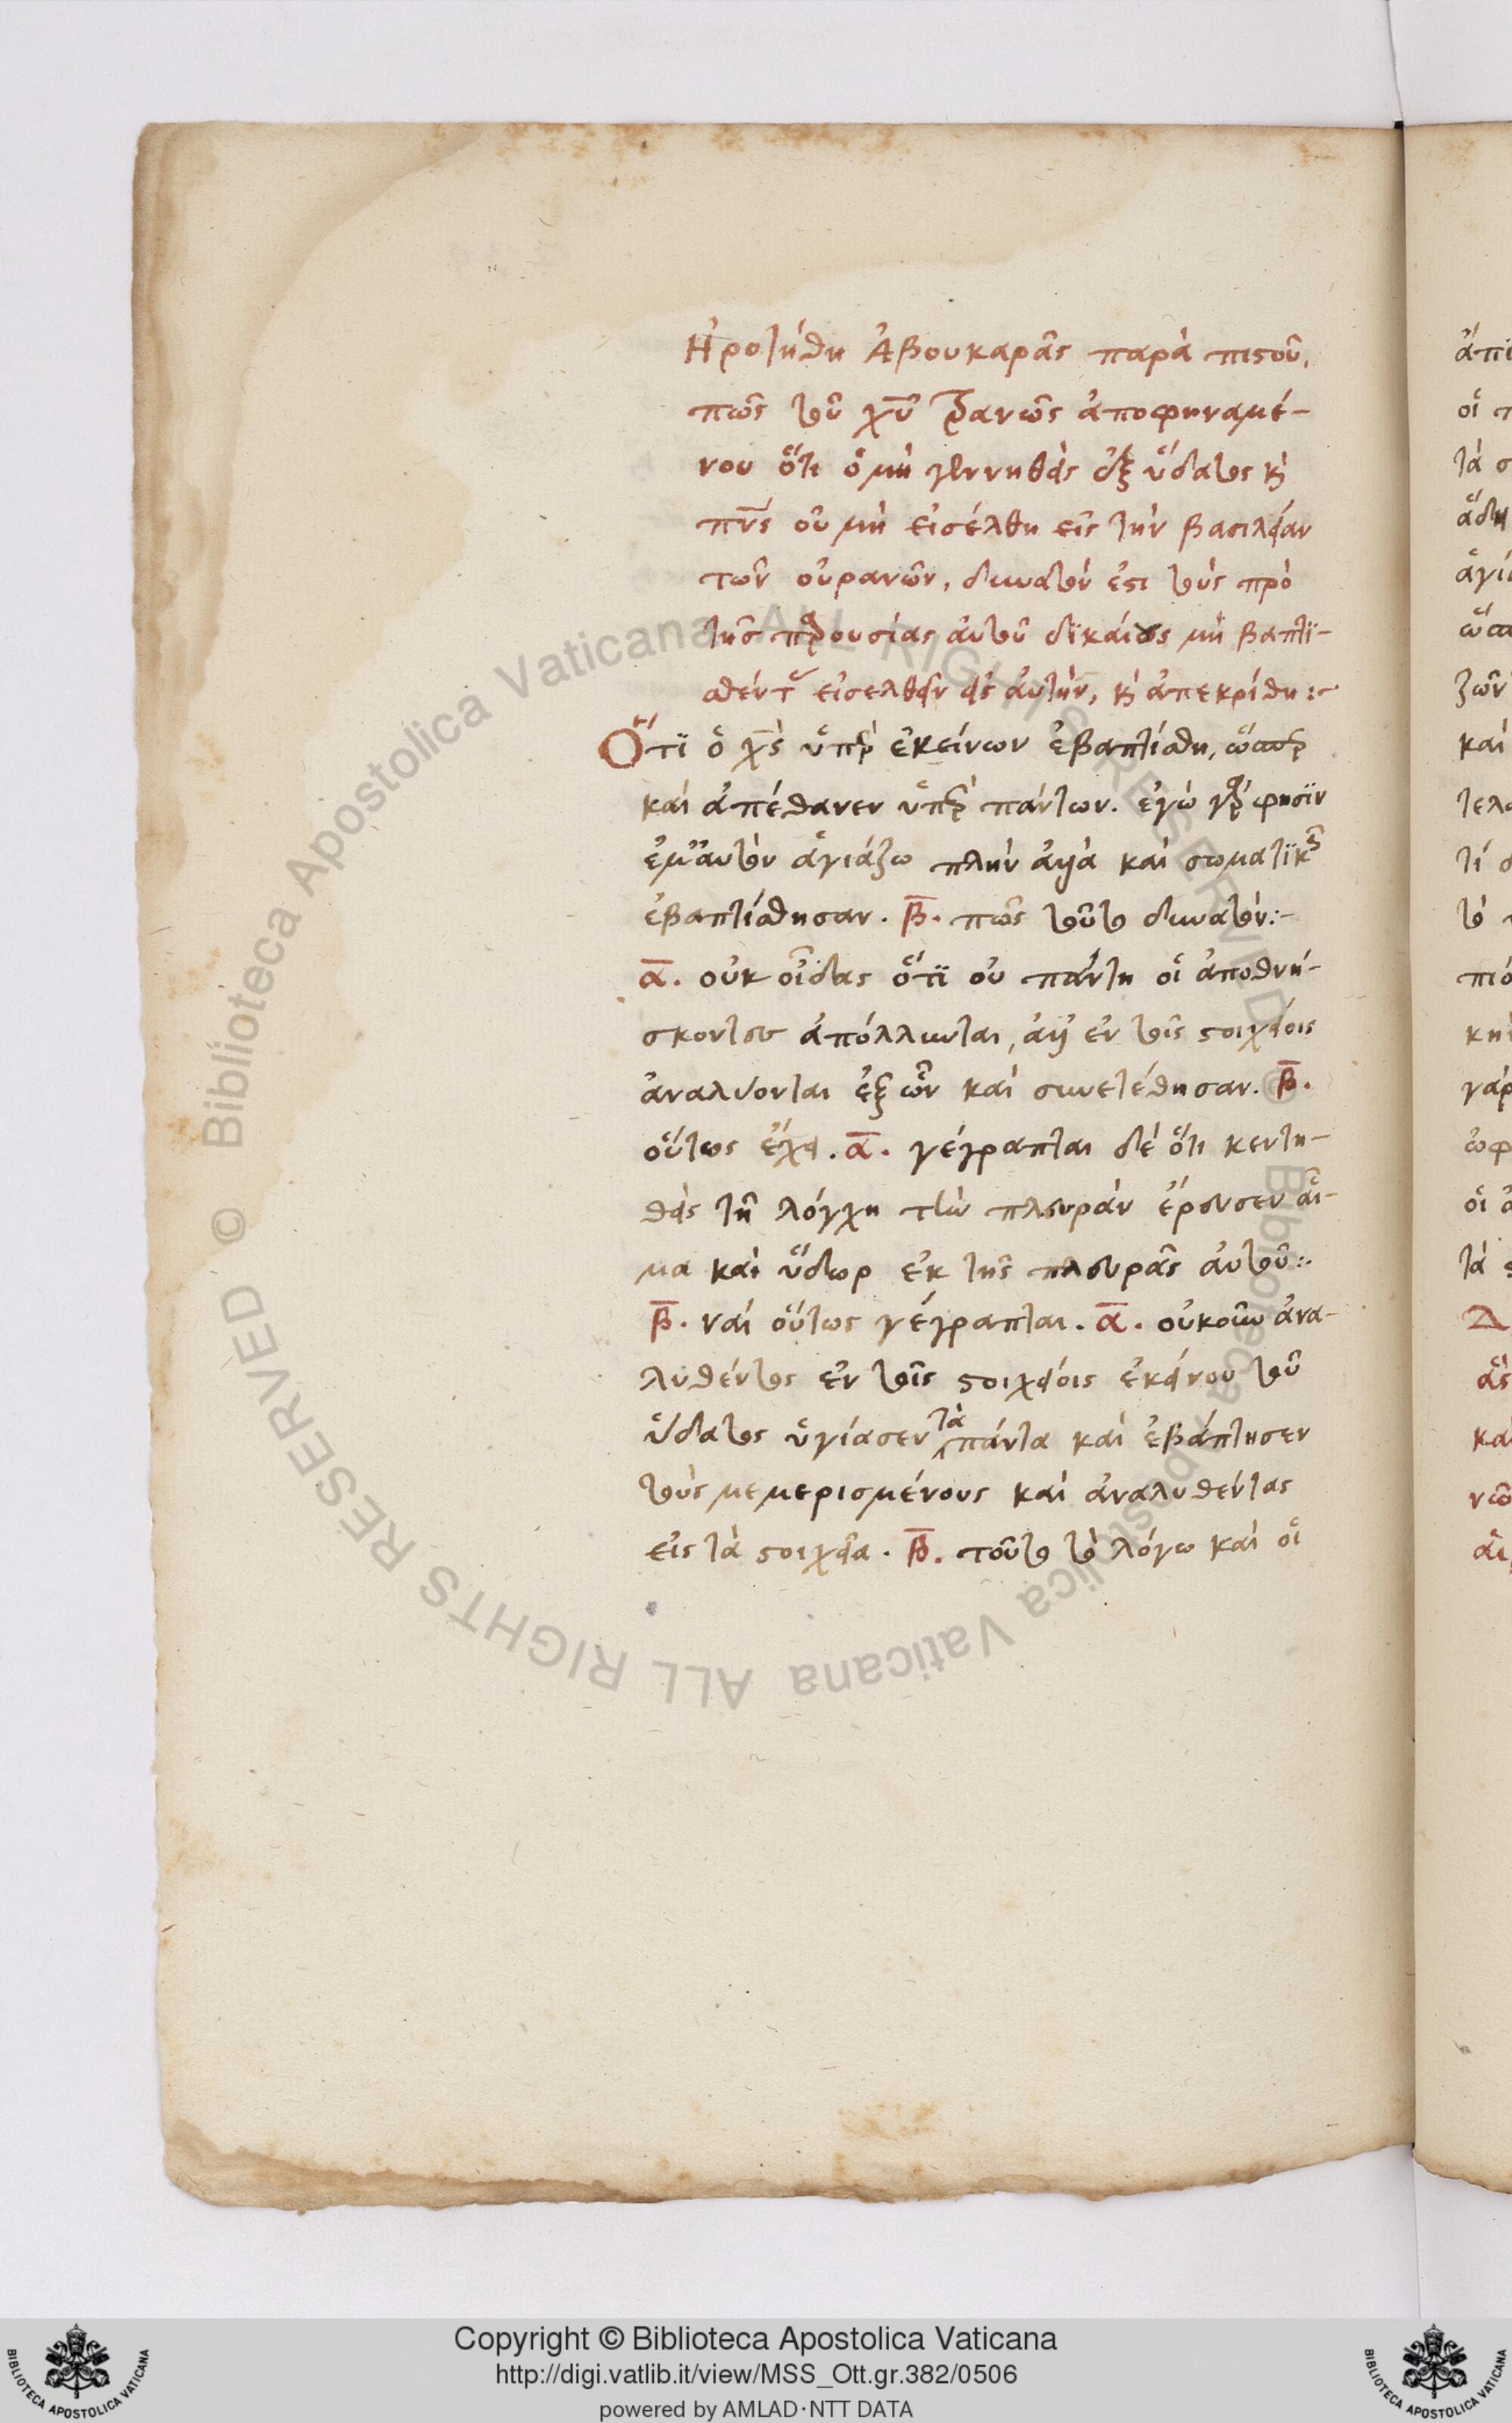 Ἠροτήθη Ἀβουκαρᾶς παρὰ πιστοῦ,
πῶς τοῦ χ̅υ̅ τρανῶς ἀποφηναμέ-
νου ὅτι ὁ μὴ γεννηθεὶς ἐξ ὕδατος κ̀
πν̅ς οὐ μὴ εἰσέλθη εἰς τὴν βασιλείαν
τῶν οὐρανῶν, δυνατόν ἐστι τοὺς πρὸ
τῆσ παρουσίας αὐτοῦ δϊκαίους μὴ βαπτϊ-
σθέντας εἰσελθεῖν εἰς αὐτὴν, κ̀ ἀπεκρίθη:~
Ὅτϊ ὁ χ̅ς̅ ὑπὲρ ἐκείνων ἐβαπτίσθη, ὥσπερ
καὶ ἀπέθανεν ὑπὲρ πάντων. ἐγὼ γάρ φησϊν
ἐμαυτὸν ἁγιάζω πλὴν ἀλλὰ καὶ σωματϊκῶς
ἐβαπτίσθησαν. β̅. πῶς τοῦτο δυνατόν:-
α̅. οὐκ οἶδας ὅτϊ οὐ πάντη οἱ ἀποθνή-
σκοντες ἀπόλλυνται, ἀλλ' ἐν τοῖς στοιχείοις
ἀναλύονται ἐξ ὧν καὶ συνετέθησαν. β̅.
οὕτως ἔχει. α̅. γέγραπται δὲ ὅτι κεντη-
θεὶς τῆ λόγχη τὴν πλευρὰν ἔρευσεν αἷ-
μα καὶ ὕδωρ ἐκ τῆς πλευρᾶς αὐτοῦ:.
β̅. ναὶ οὕτως γέγραπται. α̅. οὐκοῦν ἀνα-
λυθέντος ἐν τοῖς στοιχείοις ἐκείνου τοῦ
ὕδατος ὑγίασεν τὰ πάντα καὶ ἐβάπτησεν
τοὺς μεμερισμένους καὶ ἀναλυθέντας
εἰς τὰ στοιχεῖα. β̅. τοῦτο τὸ λόγω καὶ οἱ
Copyright © Biblioteca Apostolica Vaticana
http://digi.vatlib.it/view/MSS_Ott.gr.382/0506
powered by AMLAD·NTT DATA
BIBLIOTECA APOSTOLICA VATICANA
BIBLIOTECA APOSTOLICA VATICANA
© Biblioteca Apostolica Vaticana ALL RIGHTS RESERVED
© Biblioteca Apostolica Vaticana ALL RIGHTS RESERVED